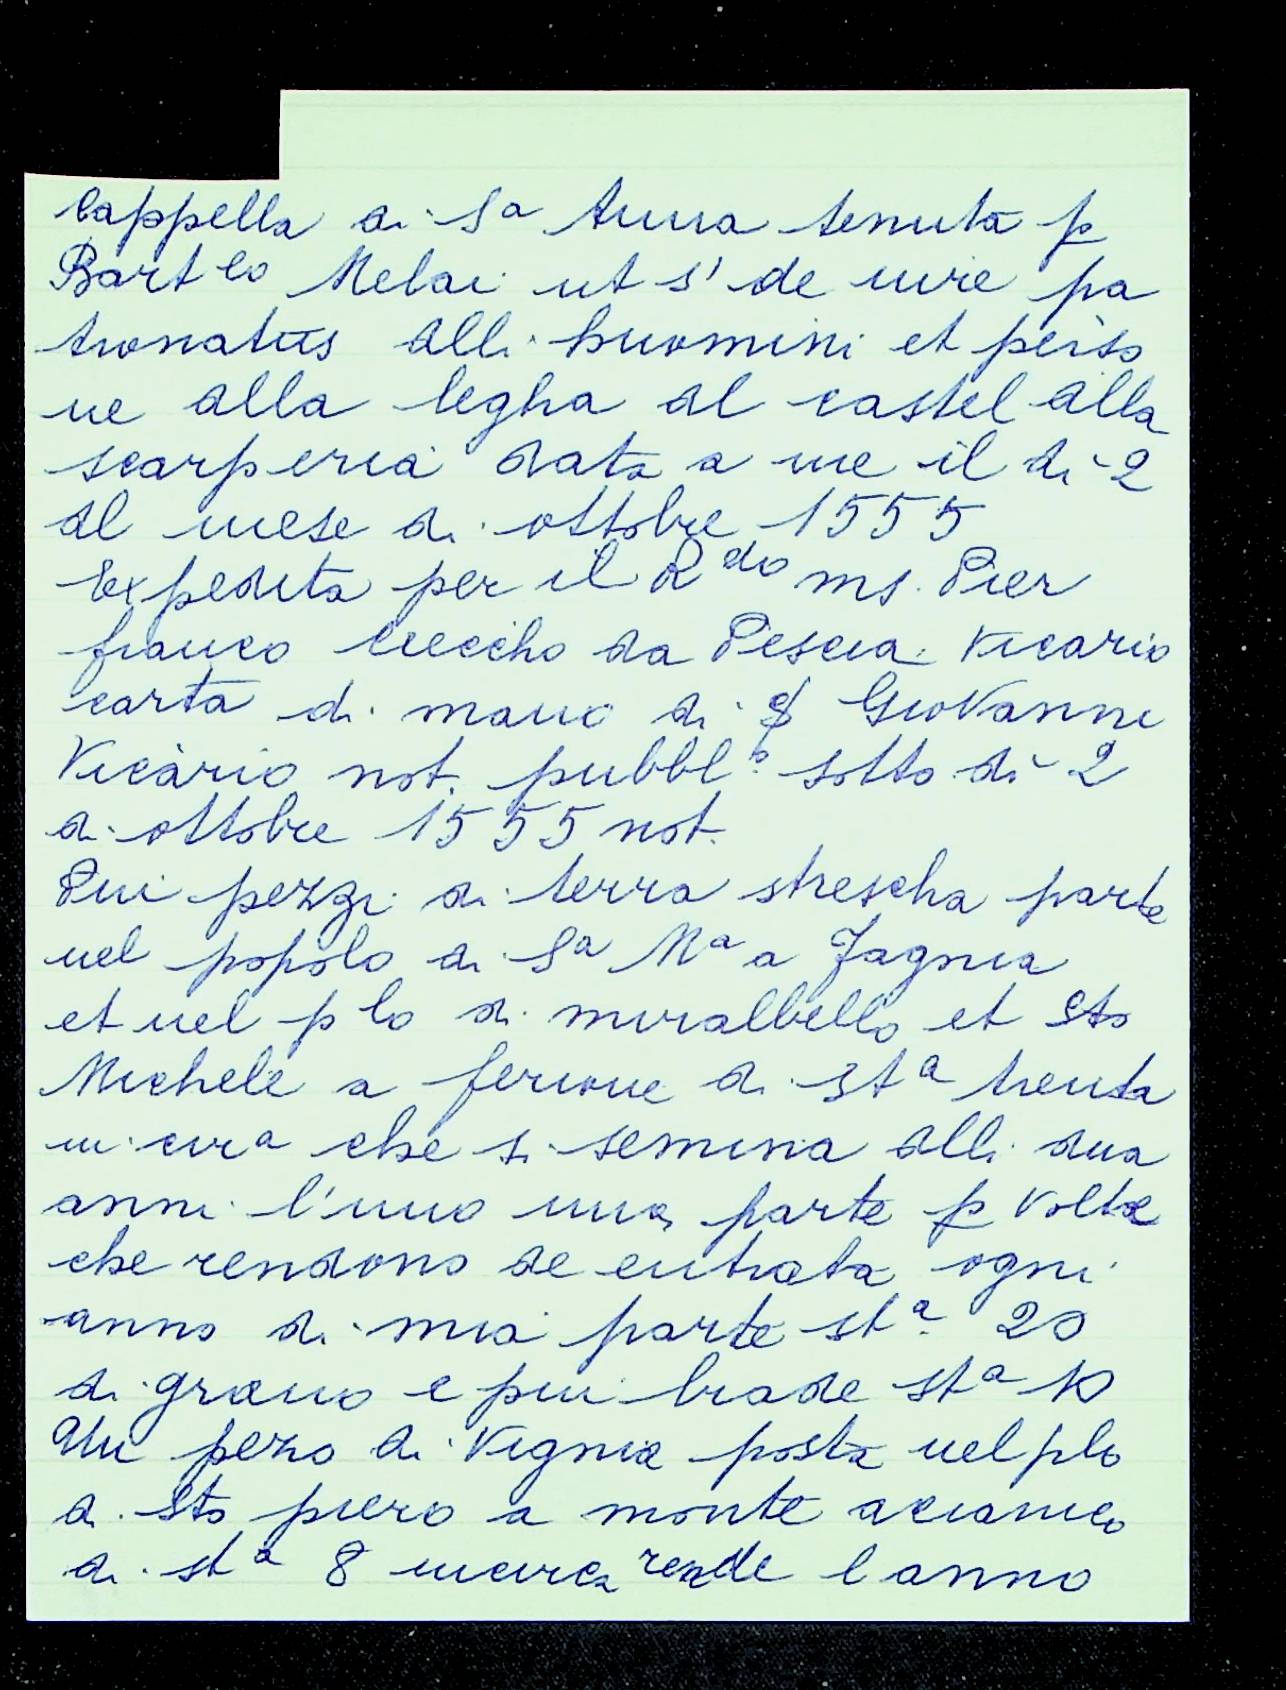 Cappella di Sa Anna tenuta p
Bartleo Melai ut s' de iure pa
tronatus dlli huomini et perso
ne dlla legha dl castel dlla
scarperia data a me il di 2
dl mese di ottobre 1555
Expedita per il Rdo ms. Pier
franco da Pescia Vicario
carta di mano di Giovanni
Vicario not. pubblo sotto di 2
di ottobre 1555 not.
Piu pezzi di terra parte
nel popolo di Sa Ma a Fagnia
et nel plo di miralbello et Sto
Michele a ferione di sta trenta
in circa che si semina dlli dua
anni l'uno una parte p volta
che rendono de entrata ogni
anno di mia parte sta 20
di grano e piu biade sta 10
Un pezo di Vignia posta nel plo
di Sto piero a monte accianico
di sta 8 incirca rende l anno